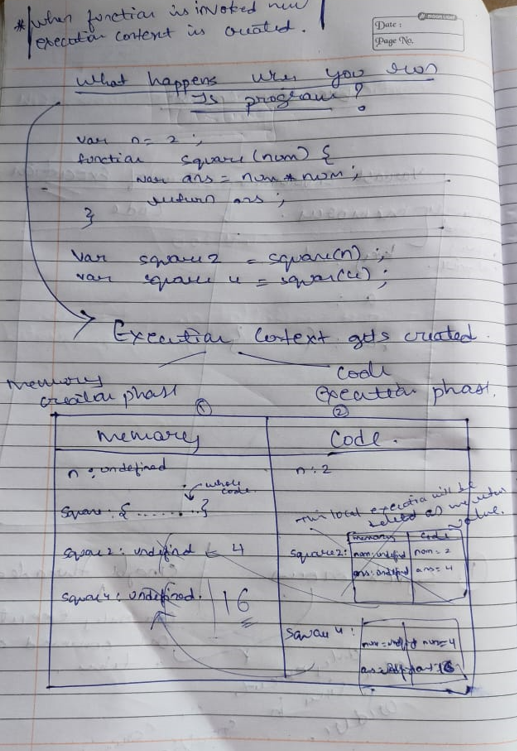 * when function is invoked new
execution context is created.
Date :
Page No.
What happens when you run
Js program?
var n = 2 ;
function square (num) {
var ans = num * num ;
return ans ;
}
var square 2 = square(n) ;
var square 4 = squar(4) ;
Execution Context gets created.
Memory
creation phase
①
Code
Execution phase.
②
Memory
Code.
n : undefined
n : 2
whole
code.
square : { ........ }
This local execution will be
deleted as
value.
square 2 : undefind 4
square 2 :
memory
code
num : undefind
num = 2
ans : undefind
ans = 4
square 4 : undefined. | 16
Squar 4 :
num = 4